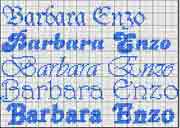 Barbara Enzo
Barbara Enzo
Barbara Enzo
Barbara Enzo
Barbara Enzo